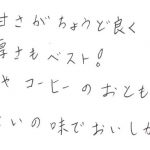 甘さがちょうど良く
厚さもベスト!
や コーヒーのおとも
いの味でおいし